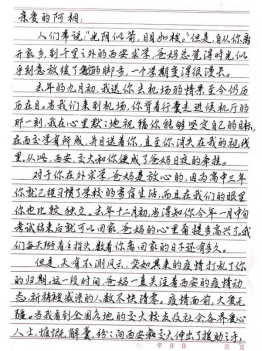 亲爱的阿相:
人们常说,"光阴似箭,日月如梭。"但是,自从你离
开家乡,到千里之外的西安求学,爸妈总觉得时光似
乎刻意放缓了前进的脚步,一个学期变得很漫长。
去年的九月初,我送你去机场的情景至今仍历
历在目。当我们来到机场,你背着行囊走进候机厅的
那一刻,我在心里默默地祝福你能够坚定自己的目标,
在西交学有所成,并目送着你,直至你消失在我的视线
里。从此,西安、交大和你便成了爸妈日夜的牵挂。
对于你在外求学,爸妈是放心的,因为高中三年
你就已经习惯了学校的寄宿生活,而且在我们的眼里
你也比较独立。去年十二月初,当得知你今年一月中旬
考试结束后就可以回家,爸妈的心里有提多高兴了,我
们每天掰着手指头,数着你离回家的日子还有多久。
但是,天有不测风云,突如其来的疫情打乱了你
的归期。这一段时间,爸妈一直关注着西安的疫情动
态,新増核感染的人数不快清零。疫情面前,大爱无
疆。当我看到全国各地的交大校友及社会各界爱心
人士,慷慨解囊,纷纷向西安和交大伸出了援助之手,